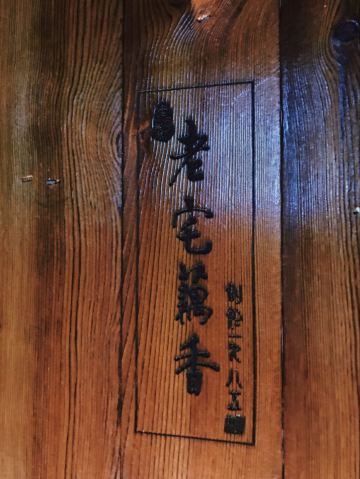 老宅藕香
創於一九八五